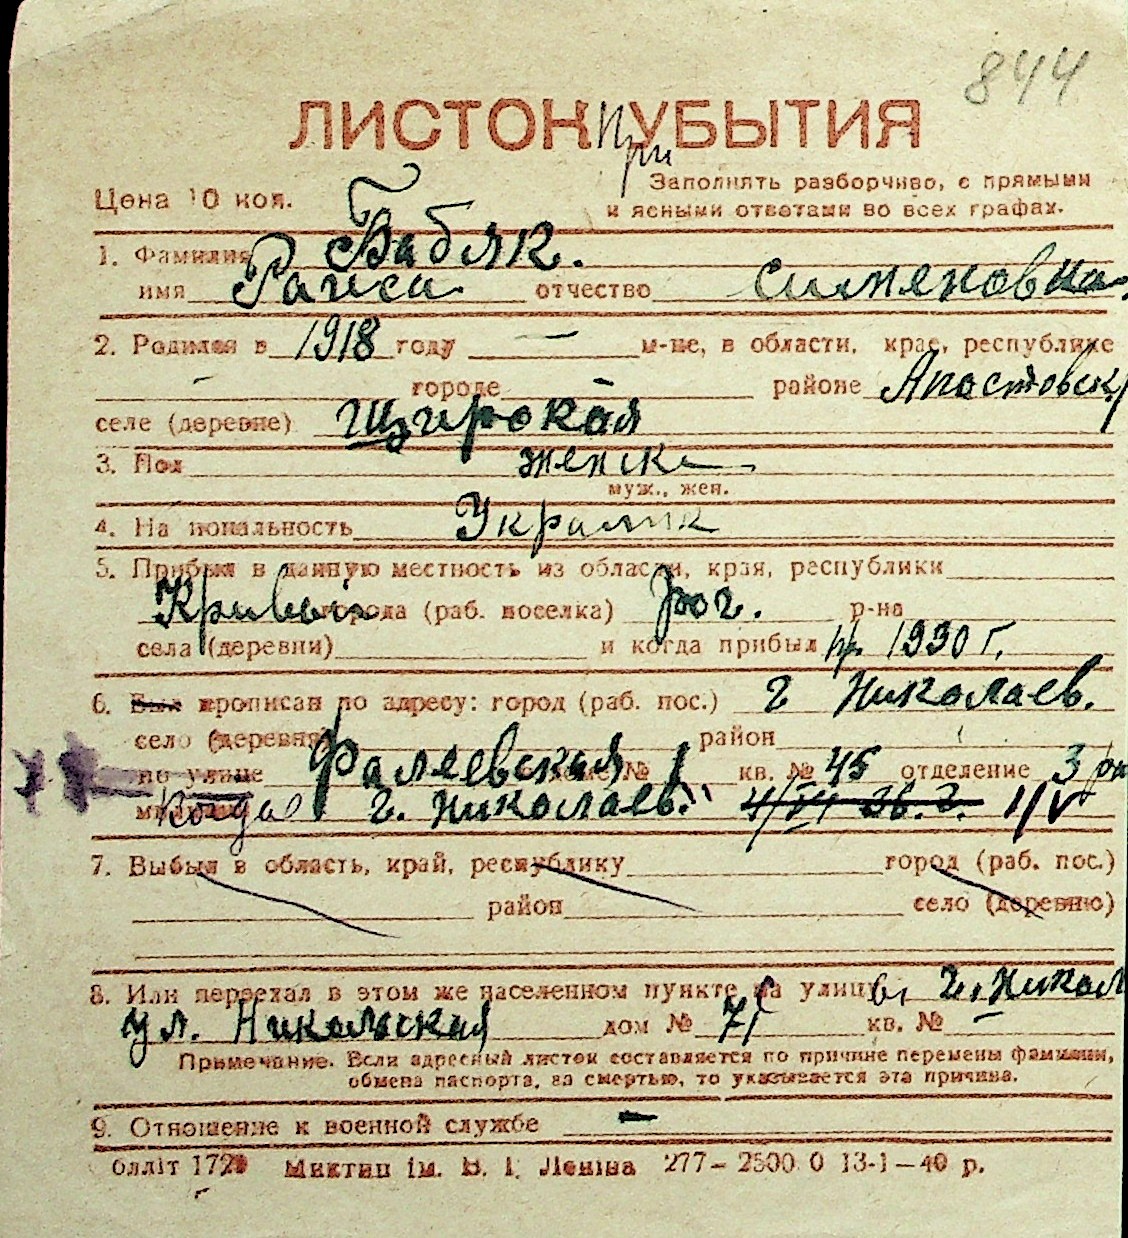 844
ЛИСТОК При УБЫТИЯ
Цена 10 коп.
Заполнять разборчиво, с прямыми
и ясными ответами во всех графах.
1. Фамилия Бабяк.
имя Раиса отчество Симяновна.
2. Родился в 1918 году — м-це, в области, крае, республике
городе районе Апостовск
селе (деревне) Щирокая
3. Пол женск
муж., жен.
4. Национальность Украинк
5. Прибыл в данную местность из области, края, республики
Кривый города (раб. поселка) рог. р-на
села (деревни) и когда прибыл 1930 г.
6. Был прописан по адресу: город (раб. пос.) г Николаев.
село (деревня) район
по улице Фалеевская кв. № 45 отделение 3
г. Николаев. 4/VI 36. г. 1/V
7. Выбыл в область, край, республику город (раб. пос.)
район село (деревню)
8. Или переехал в этом же населенном пункте на улицу г. Никол
ул. Никольская дом № 71 кв. № —
Примечание. Если адресный листок составляется по причине перемены фамилии,
обмена паспорта, за смертью, то указывается эта причина.
9. Отношение к военной службе —
облліт 172 Миктип ім. В. І. Леніна 277— 2500 0 13-1—40 р.